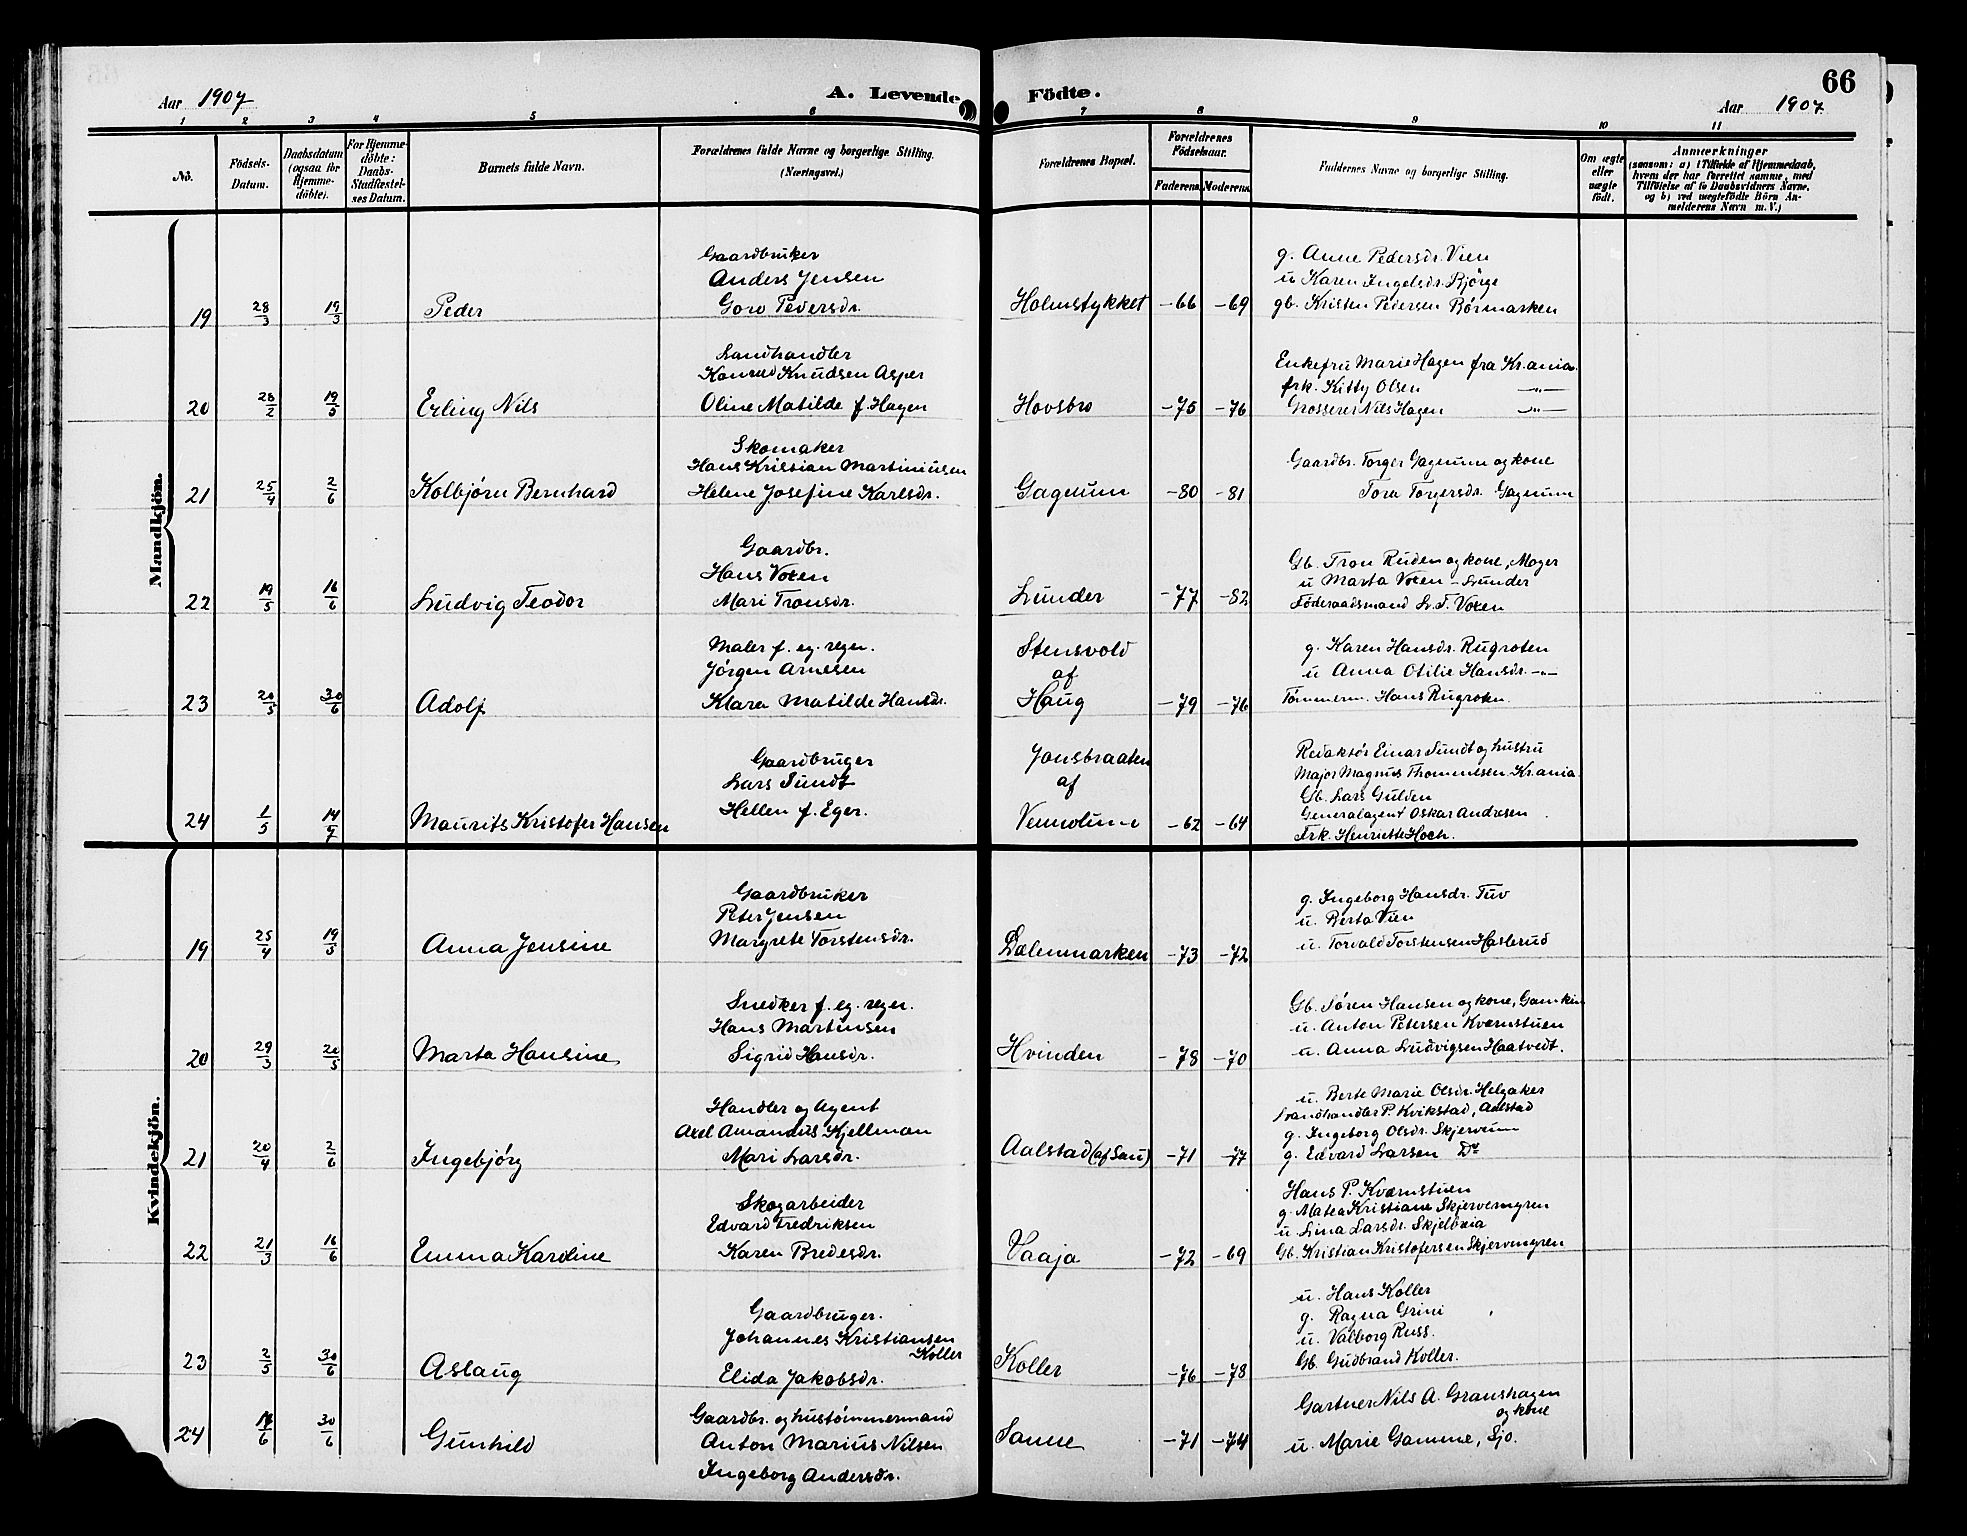 66
Aar 1907
A. Levende Födte.
Aar 1907.
1 2 3 4 5 6 7 8 9 10 11
No.
Födsels-Datum.
Daabsdatum (ogsaa for Hjemme-döbte).
For Hjemme-döbte: Daabs-Stadfæstel-ses Datum.
Barnets fulde Navn.
Forældrenes fulde Navne og borgerlige Stilling. (Næringsvei.)
Forældrenes Bopæl.
Forældrenes Födselsaar.
Faderens. Moderens.
Faddernes Navne og borgerlige Stilling.
Om ægte eller uægte födt.
Anmærkninger
(saasom: a) i Tilfælde af Hjemmedaab, hvem der har forrettet samme, med Tilföielse af to Daabsvidners Navne, og b) ved uægtefödte Börn An-melderens Navn m. V.)
Mandkjön.
Gaardbruker
Anders Jensen
19 28/3 19/3 Peder Goro Pedersdr. Holmstykket -66 -69
g. Anne Pedersdr. Vien
u Karen Ingelsdr. Bjørge
gb. Kristen Pedersen Børmarken
Landhandler
Konrad Knudsen Asper
20 28/2 19/5 Erling Nils Oline Matilde f. Hagen Hovsbro -75 -76
Enkefru Marie Hagen fra Kr.ania
frk. Kitty Olsen —"—
Grosserer Nils Hagen —"—
Skomaker
Hans Kristian Martiniusen
21 25/4 2/6 Kolbjørn Bernhard Helene Josefine Karlsdr. Gagnum -80 -81
Gaardbr. Torger Gagnum og kone
Tora Torgersdr. Gagnum
Gaardbr.
Hans Voxen
22 19/5 16/6 Ludvig Teodor Mari Tronsdr. Lunder -77 -82
Gb. Tron Ruden og kone, Moger
u Marta Voxen - Lunder
Föderaadsmand L. T. Voxen
Maler f. eg. regn.
Jørgen Arnesen
23 20/5 30/6 Adolf Klara Matilde Hansdr.
Stensvold
af
Haug -79 -76
g. Karen Hansdr. Rugroten
u Anna Otilie Hansdr. -"-
Tømmerm. Hans Rugroten.
Gaardbruger
Lars Sundt
24 1/5 14/7 Maurits Kristofer Hansen Hellen f. Eger.
Jonsbraaten
af
Vennolum -62 -64
Redaktør Einar Sundt og hustru
Major Magnus Thommesen Kr.ania
Gb. Lars Gulden
Generalagent Oskar Andresen
Frk. Henriette Hoch.
Kvindekjön.
Gaardbruker
Peter Jensen
19 25/4 19/5 Anna Jensine Margrete Torstensdr. Dælenmarken -73 -72
g. Ingeborg Hansdr. Tuv
u. Berta Vien
u. Torvald Torstensen Haslerud
Snedker f. eg. regn.
Hans Martinsen
20 29/3 20/5 Marta Hansine Sigrid Hansdr. Hvinden -78 -70
Gb. Søren Hansen og kone, Gamkin
u. Anton Petersen Kværnstuen
u. Anna Ludvigsen Haatvedt.
Handler og Agent
Axel Amandus Kjellman
21 20/4 2/6 Ingebjørg Mari Larsdr. Aalstad (af Sau) -71 -77
u. Berte Marie Olsdr. Helgaker
Landhandler P. Kvikstad, Aalstad
g. Ingeborg Olsdr. Skjervum
g. Edvard Larsen Do
Skogarbeider
Edvard Fredriksen
22 21/3 16/6 Emma Karoline Karen Bredesdr. Vaaja -72 -69
Hans P. Kværnstuen
g. Matea Kristiane Skjervemgren
u. Lina Larsdr. Skjelbreia
Gb. Kristian Kristofersen Skjervemgren
Gaardbruger.
Johannes Kristiansen
Koller
23 2/5 30/6 Aslaug Elida Jakobsdr. Koller -76 -78
u. Hans Koller
g. Ragna Grini
u. Valborg Russ.
Gb. Gudbrand Koller.
Gaardbr. og hustømmermand
24 14/6 30/6 Gunhild Anton Marius Nilsen
Ingeborg Andersdr. Sanne -71 -74
Gartner Nils A. Granshagen
og kone
u. Marie Gamme, Sjo.